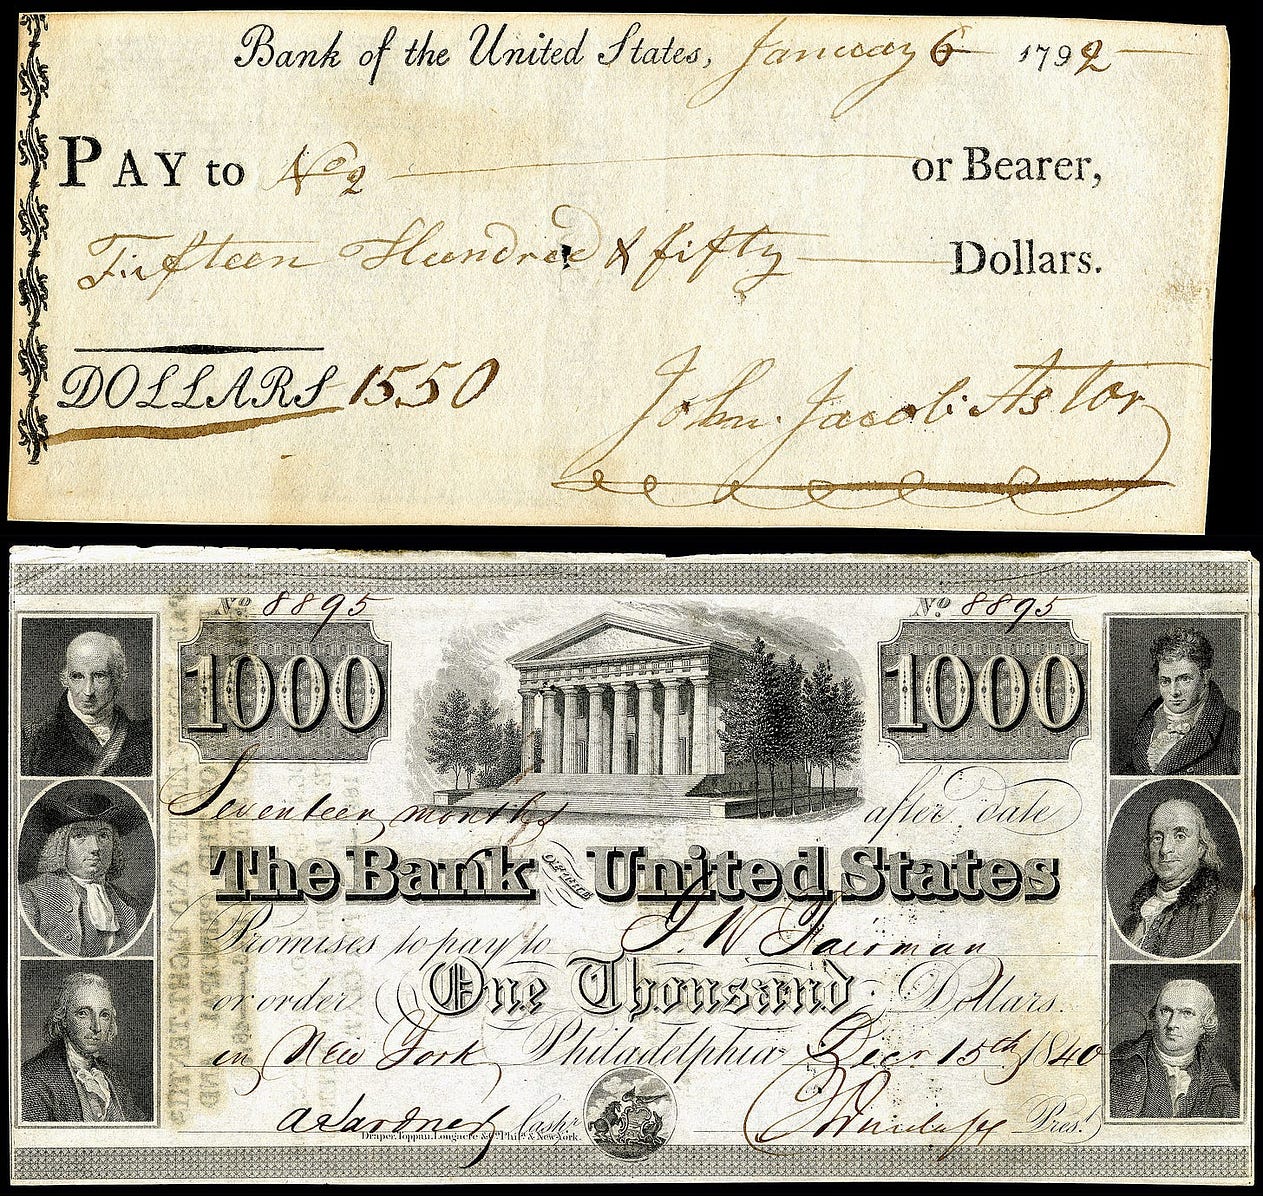 Bank of the United States, January 6 1792
PAY to No 2 or Bearer,
Fifteen Hundred & fifty Dollars.
DOLLARS 1550
John Jacob Astor
No 8895 No 8895
1000 1000
Seventeen months after date
The Bank OF THE United States
Promises to pay to J. W. Fairman
or order One Thousand Dollars.
in New York Philadelphia Decr 15th 1840
A Lardner Cashr Pres!
Draper, Toppan, Longacre & Co. Phila. & New York.